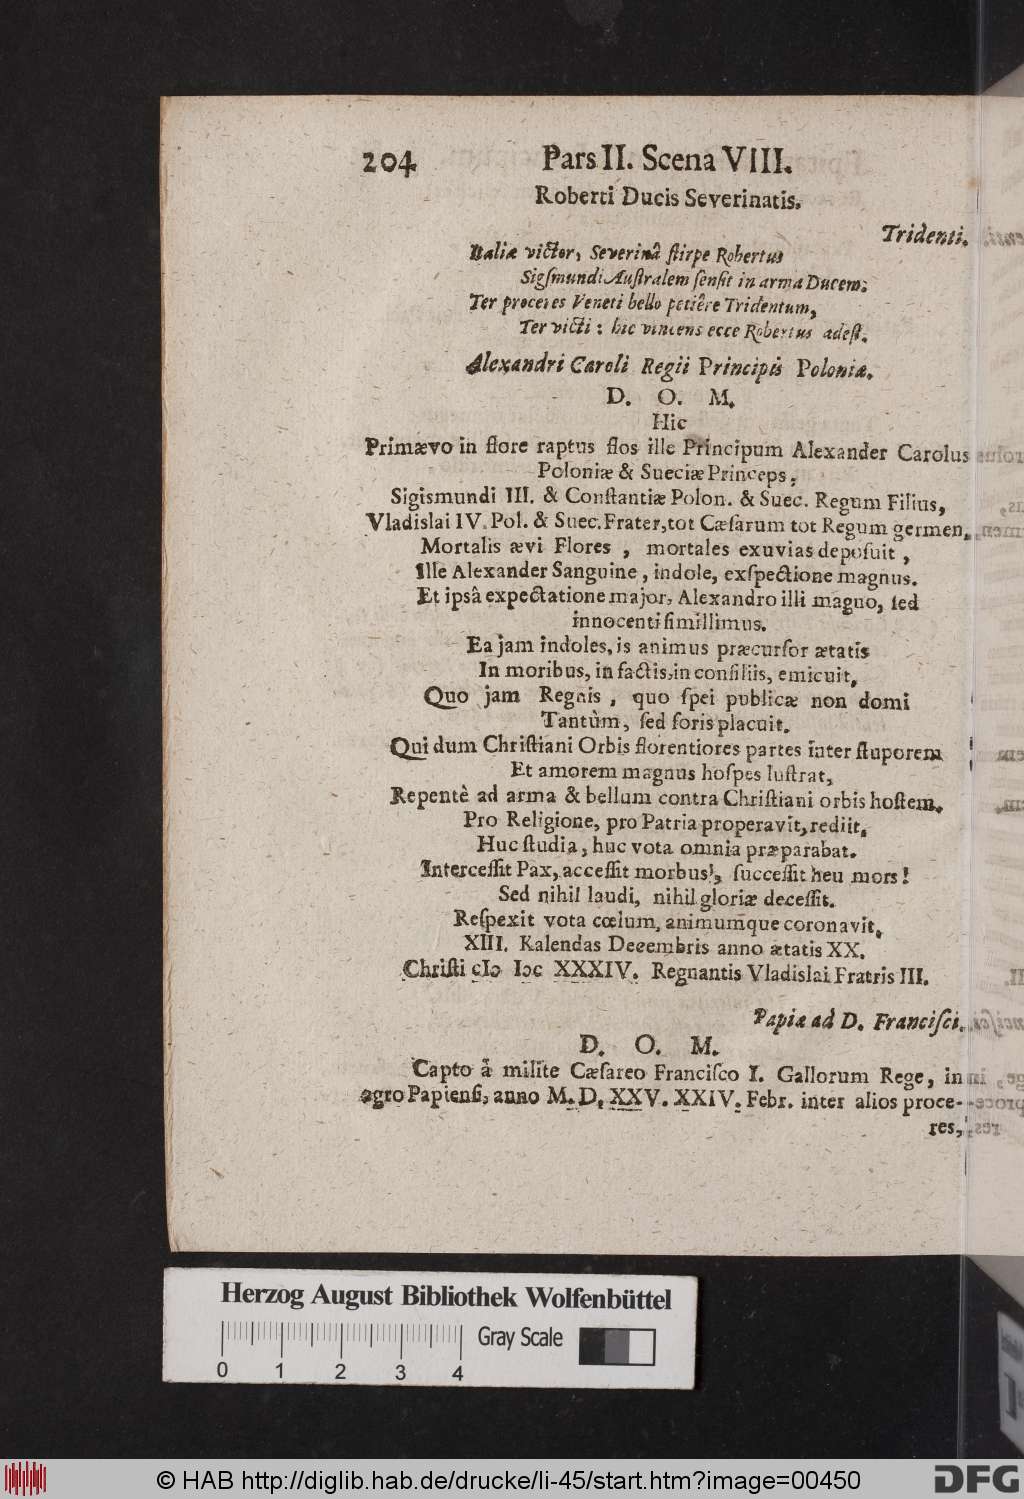 204 Pars II. Scena VIII.
Roberti Ducis Severinatis.
Tridenti.
Italiæ victor, Severinâ stirpe Robertus
Sigsmundi Australem sensit in arma Ducem:
Ter proceres Veneti bello petiêre Tridentum,
Ter victi: hic vincens ecce Robertus adest.
Alexandri Caroli Regii Principis Poloniæ.
D. O. M.
Hic
Primævo in flore raptus flos ille Principum Alexander Carolus
Poloniæ & Sueciæ Princeps.
Sigismundi III. & Constantiæ Polon. & Suec. Regum Filius,
Vladislai IV. Pol. & Suec. Frater, tot Cæsarum tot Regum germen,
Mortalis ævi Flores, mortales exuvias deposuit,
Ille Alexander Sanguine, indole, exspectione magnus.
Et ipsâ expectatione major, Alexandro illi magno, sed
innocenti simillimus.
Ea jam indoles, is animus præcursor ætatis
In moribus, in factis, in consiliis, emicuit,
Quo jam Regnis, quo spei publicæ non domi
Tantùm, sed foris placuit.
Qui dum Christiani Orbis florentiores partes inter stuporem
Et amorem magnus hospes lustrat,
Repentè ad arma & bellum contra Christiani orbis hostem.
Pro Religione, pro Patria properavit, rediit,
Huc studia, huc vota omnia præparabat.
Intercessit Pax, accessit morbus, successit heu mors!
Sed nihil laudi, nihil gloriæ decessit.
Respexit vota cœlum, animumque coronavit,
XIII. Kalendas Decembris anno ætatis XX.
Christi cIɔ Iɔc XXXIV. Regnantis Vladislai Fratris III.
Papiæ ad D. Francisci.
D. O. M.
Capto à milite Cæsareo Francisco I. Gallorum Rege, in
agro Papiensi, anno M. D. XXV. XXIV. Febr. inter alios proce-
res,
Herzog August Bibliothek Wolfenbüttel
Gray Scale
0 1 2 3 4
© HAB http://diglib.hab.de/drucke/li-45/start.htm?image=00450
DFG